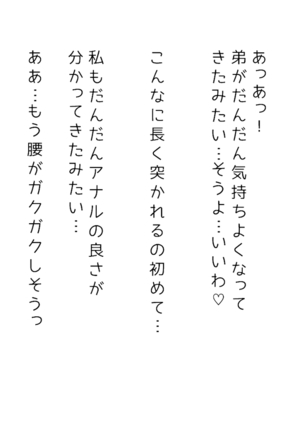 あっあっ！
弟がだんだん気持ちよくなって
きたみたい…そうよ…いいわ♡
こんなに長く突かれるの初めて…
私もだんだんアナルの良さが
分かってきたみたい…
ああ…もう腰がガクガクしそうっ